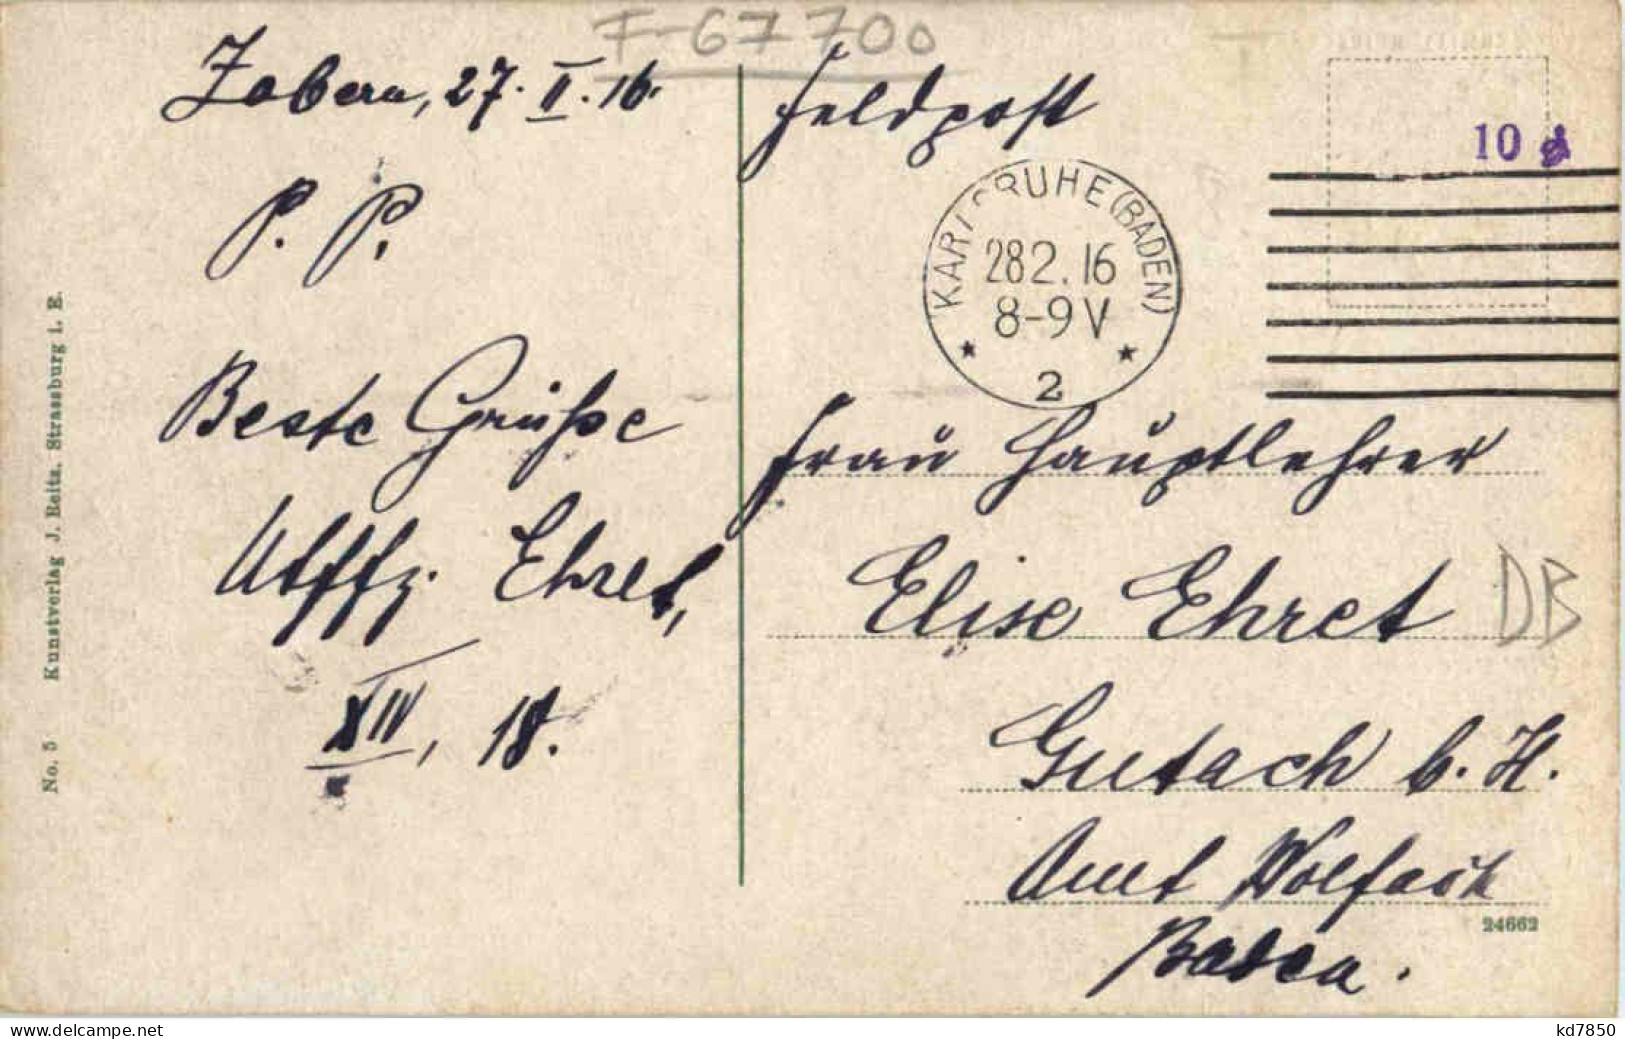 F-67700
Zabern, 27. II. 16.
P. P.
Beste Grüße
Utffz. Ehret,
XIV, 18.
Feldpost
10
KARLSRUHE (BADEN)
282.16
8-9 V
* 2 *
Frau Hauptlehrer
Elise Ehret
DB
Gutach b. H.
Amt Wolfach
Baden.
24662
No. 5 Kunstverlag J. Beltz. Strassburg i. E.
kd7850
www.delcampe.net